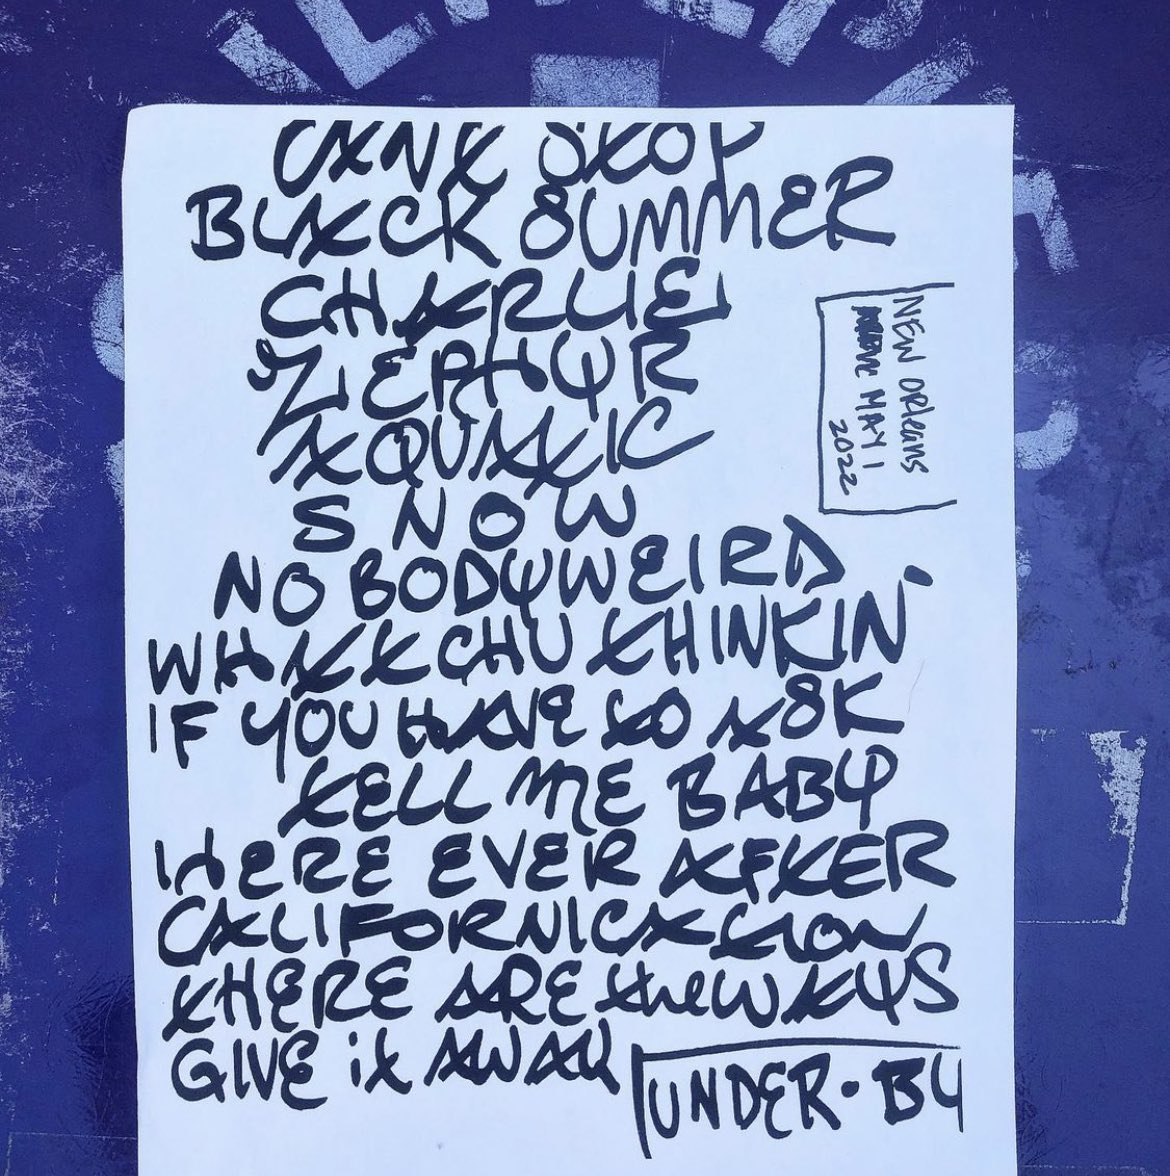 CANT STOP
BLACK SUMMER
CHARLIE
ZEPHYR
AQUATIC
SNOW
NOBODYWEIRD
WHATCHU THINKIN'
IF YOU HAVE TO ASK
TELL ME BABY
HERE EVER AFTER
CALIFORNICATION
THERE ARE the WAYS
GIVE it AWAY
UNDER • B
NEW Orleans
MAY 1
2022